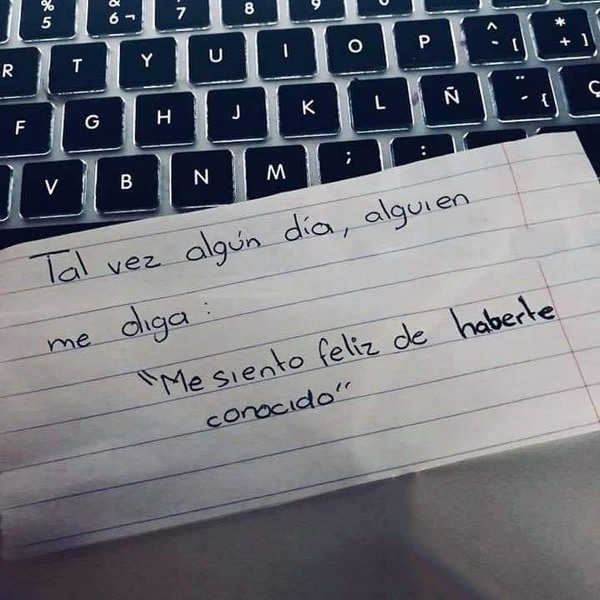 % 5 & 6 ¬ / 7 ( 8 ) 9
R T Y U I O P ^ ` [ * + ]
F G H J K L Ñ ¨ ´ { Ç
V B N M ; :
Tal vez algún día, alguien
me diga :
"Me siento feliz de haberte
conocido"